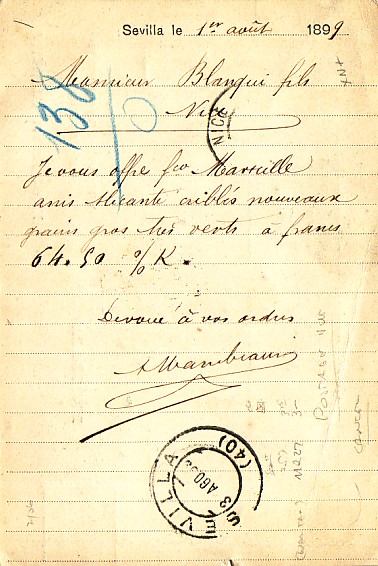 Sevilla le 1er août 1899
Monsieur Blanqui fils
Nice
NICE
138
0
Je vous offre fco Marseille
anis Alicante criblés nouveaux
grains gros très verts à francs
64.50 % K.
Dévoué à vos ordres
SEVILLA
3 AGO
(40)
11227